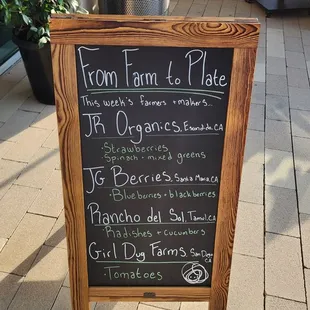 From Farm to Plate
This week's farmers + makers...
JR Organics, Escondido, CA
• Strawberries
• Spinach + mixed greens
JG Berries, Santa Maria, CA
• Blueberries + blackberries
Rancho del Sol, Jamul, CA
• Radishes + cucumbers
Girl Dug Farms, San Diego, CA
• Tomatoes